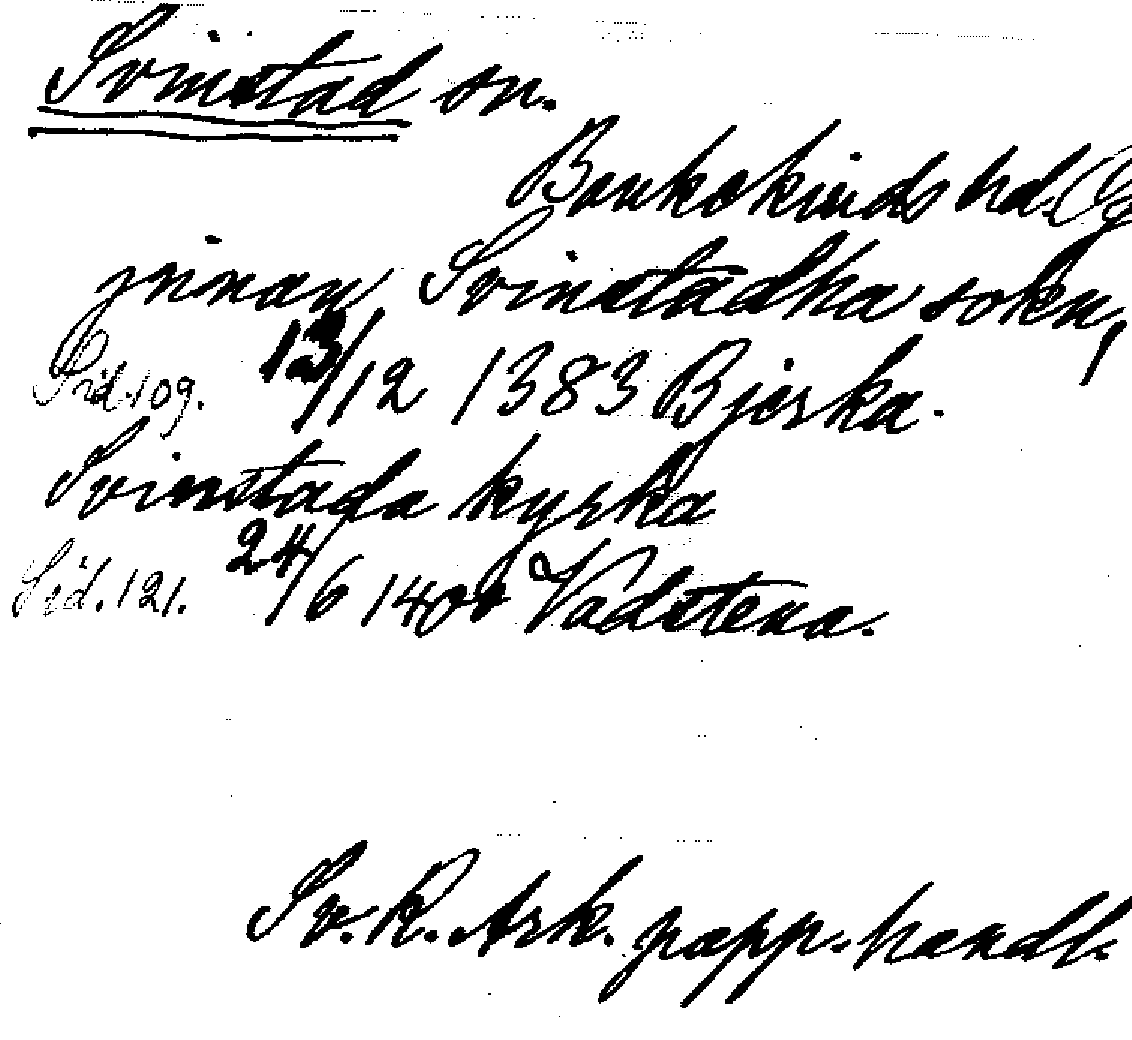 Svinstad sn.
Bankekinds hd. (Ög
jnnan Svinstadha sokn,
Sid. 109. 13/12 1383 Bjerka.
Svinstada kyrka
Sid. 121. 24/6 1400 Vadstena.
Sv. R. Ark. papp. handl.